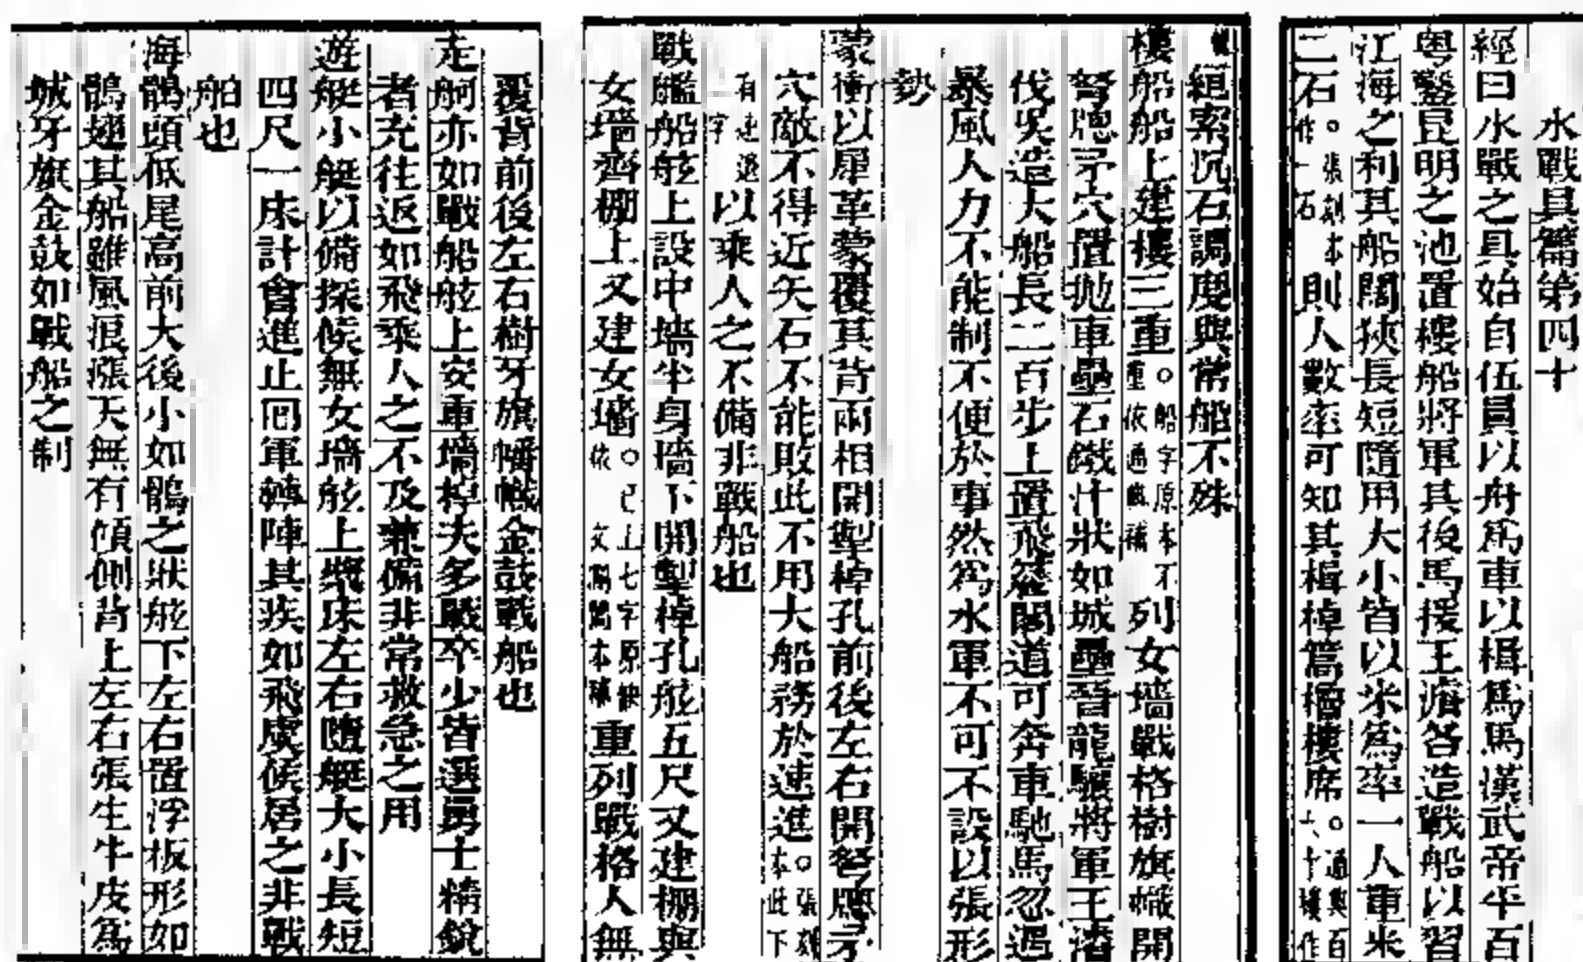 水戰具篇第四十
經曰水戰之具始自伍員以舟為車以楫為馬漢武帝平百
粵鑿昆明之池置樓船將軍其後馬援王濬各造戰船以習
江海之利其船闊狹長短隨用大小皆以米為率一人重米
二石。張刻本作一石則人數率可知其楫棹篙櫓樓席。通典百六十樓作
絙索沉石調度與常船不殊
樓船船上建樓三重。船字原本不重依通典補列女墻戰格樹旗幟開
弩牕矛穴置拋車壘石鐵汁狀如城壘晉龍驤將軍王濬
伐吳造大船長二百步上置飛簷閣道可奔車馳馬忽遇
暴風人力不能制不便於事然為水軍不可不設以張形
勢
蒙衝以犀革蒙覆其背兩相開掣棹孔前後左右開弩牕矛
穴敵不得近矢石不能敗此不用大船務於速進。張刻本此下
有速退字以乘人之不備非戰船也
戰艦船舷上設中墻半身墻下開掣棹孔舷五尺又建棚與
女墻齊棚上又建女墻。已上七字原缺依文瀾閣本補重列戰格人無
覆背前後左右樹牙旗幡幟金鼓戰船也
走舸亦如戰船舷上安重墻棹夫多戰卒少皆選勇士精銳
者充往返如飛乘人之不及兼備非常救急之用
遊艇小艇以備探候無女墻舷上槳床左右隨艇大小長短
四尺一床計會進止回軍轉陣其疾如飛虞候居之非戰
舶也
海鶻頭低尾高前大後小如鶻之狀舷下左右置浮板形如
鶻翅其船雖風浪漲天無有傾側背上左右張生牛皮為
城牙旗金鼓如戰船之制